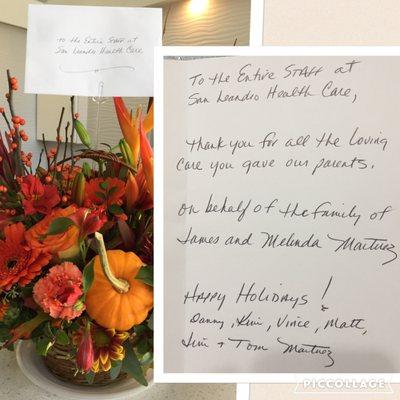 To the Entire Staff at
San Leandro Health Care
To the Entire STAFF at
San Leandro Health Care,
thank you for all the Loving
care you gave our parents.
on behalf of the family of
James and Melinda Martinez
HAPPY Holidays!
Danny, Kim, Vince, Matt,
Jim + Tom Martinez
PICCOLLAGE